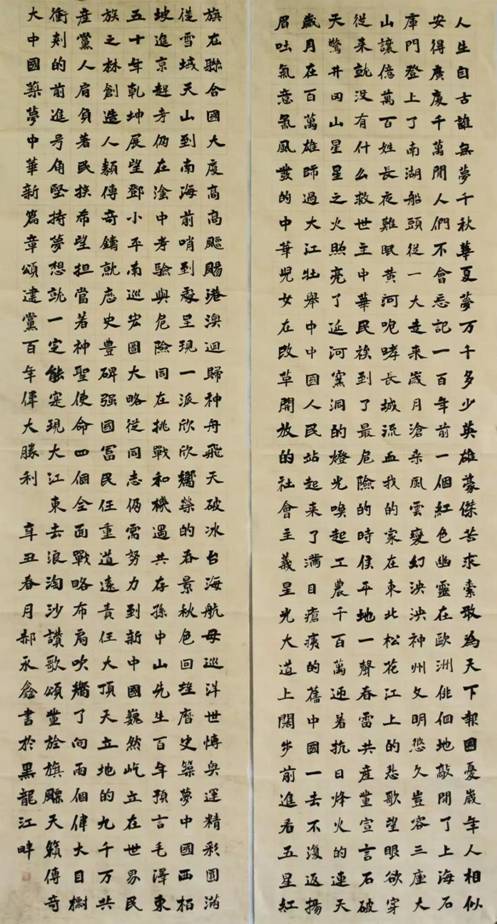 人生自古誰無夢千秋華夏夢萬千多少英雄豪傑苦求索敢為天下報國憂歲年人相似
安得廣廈千萬間人們不會忘記一百年前一個紅色幽靈在歐洲徘徊地敲開了上海石
庫門登上了南湖船頭從一大走來歲月滄桑風雲變幻泱泱神州文明悠久豈容三座大
山讓億萬百姓長夜難眠黃河咆哮長城流血我的家在東北松花江上的悲歌望眼欲穿
從來就沒有什么救世主中華民族到了最危險的時候平地一聲春雷共產黨宣言石破
天驚井岡山星星之火照亮了延河窯洞的燈光喚起工農千百萬連著抗日烽火的連天
歲月在百萬雄師過大江壯舉中中國人民站起來了滿目瘡痍的舊中國一去不復返揚
眉吐氣意氣風發的中華兒女在改革開放的社會主義星光大道上闊步前進看五星紅
旗在聯合國大廈高高飄揚港澳迴歸神舟飛天破冰台海航母巡洋世博奧運精彩圓滿
從雪域天山到南海前哨到處呈現一派欣欣嚮榮的春景秋色回望歷史築夢中國西柏
坡進京趕考仍在途中考驗與危險同在挑戰和機遇共存孫中山先生百年預言毛澤東
五十年乾坤展望鄧小平南巡宏圖大略從同志仍需努力到新中國巍然屹立在世界民
族之林創造人類傳奇鑄就歷史豐碑強國富民任重道遠責任大頂天立地的九千萬共
產黨人肩負著民族希望擔當著神聖使命四個全面戰略布局吹響了向兩個偉大目標
衝刺的前進號角堅持夢想就一定能實現大江東去浪淘沙讚歌頌黨於旗飄天籟傳奇
大中國築夢中華新篇章頌建黨百年偉大勝利 辛丑春月郝永書於黑龍江畔